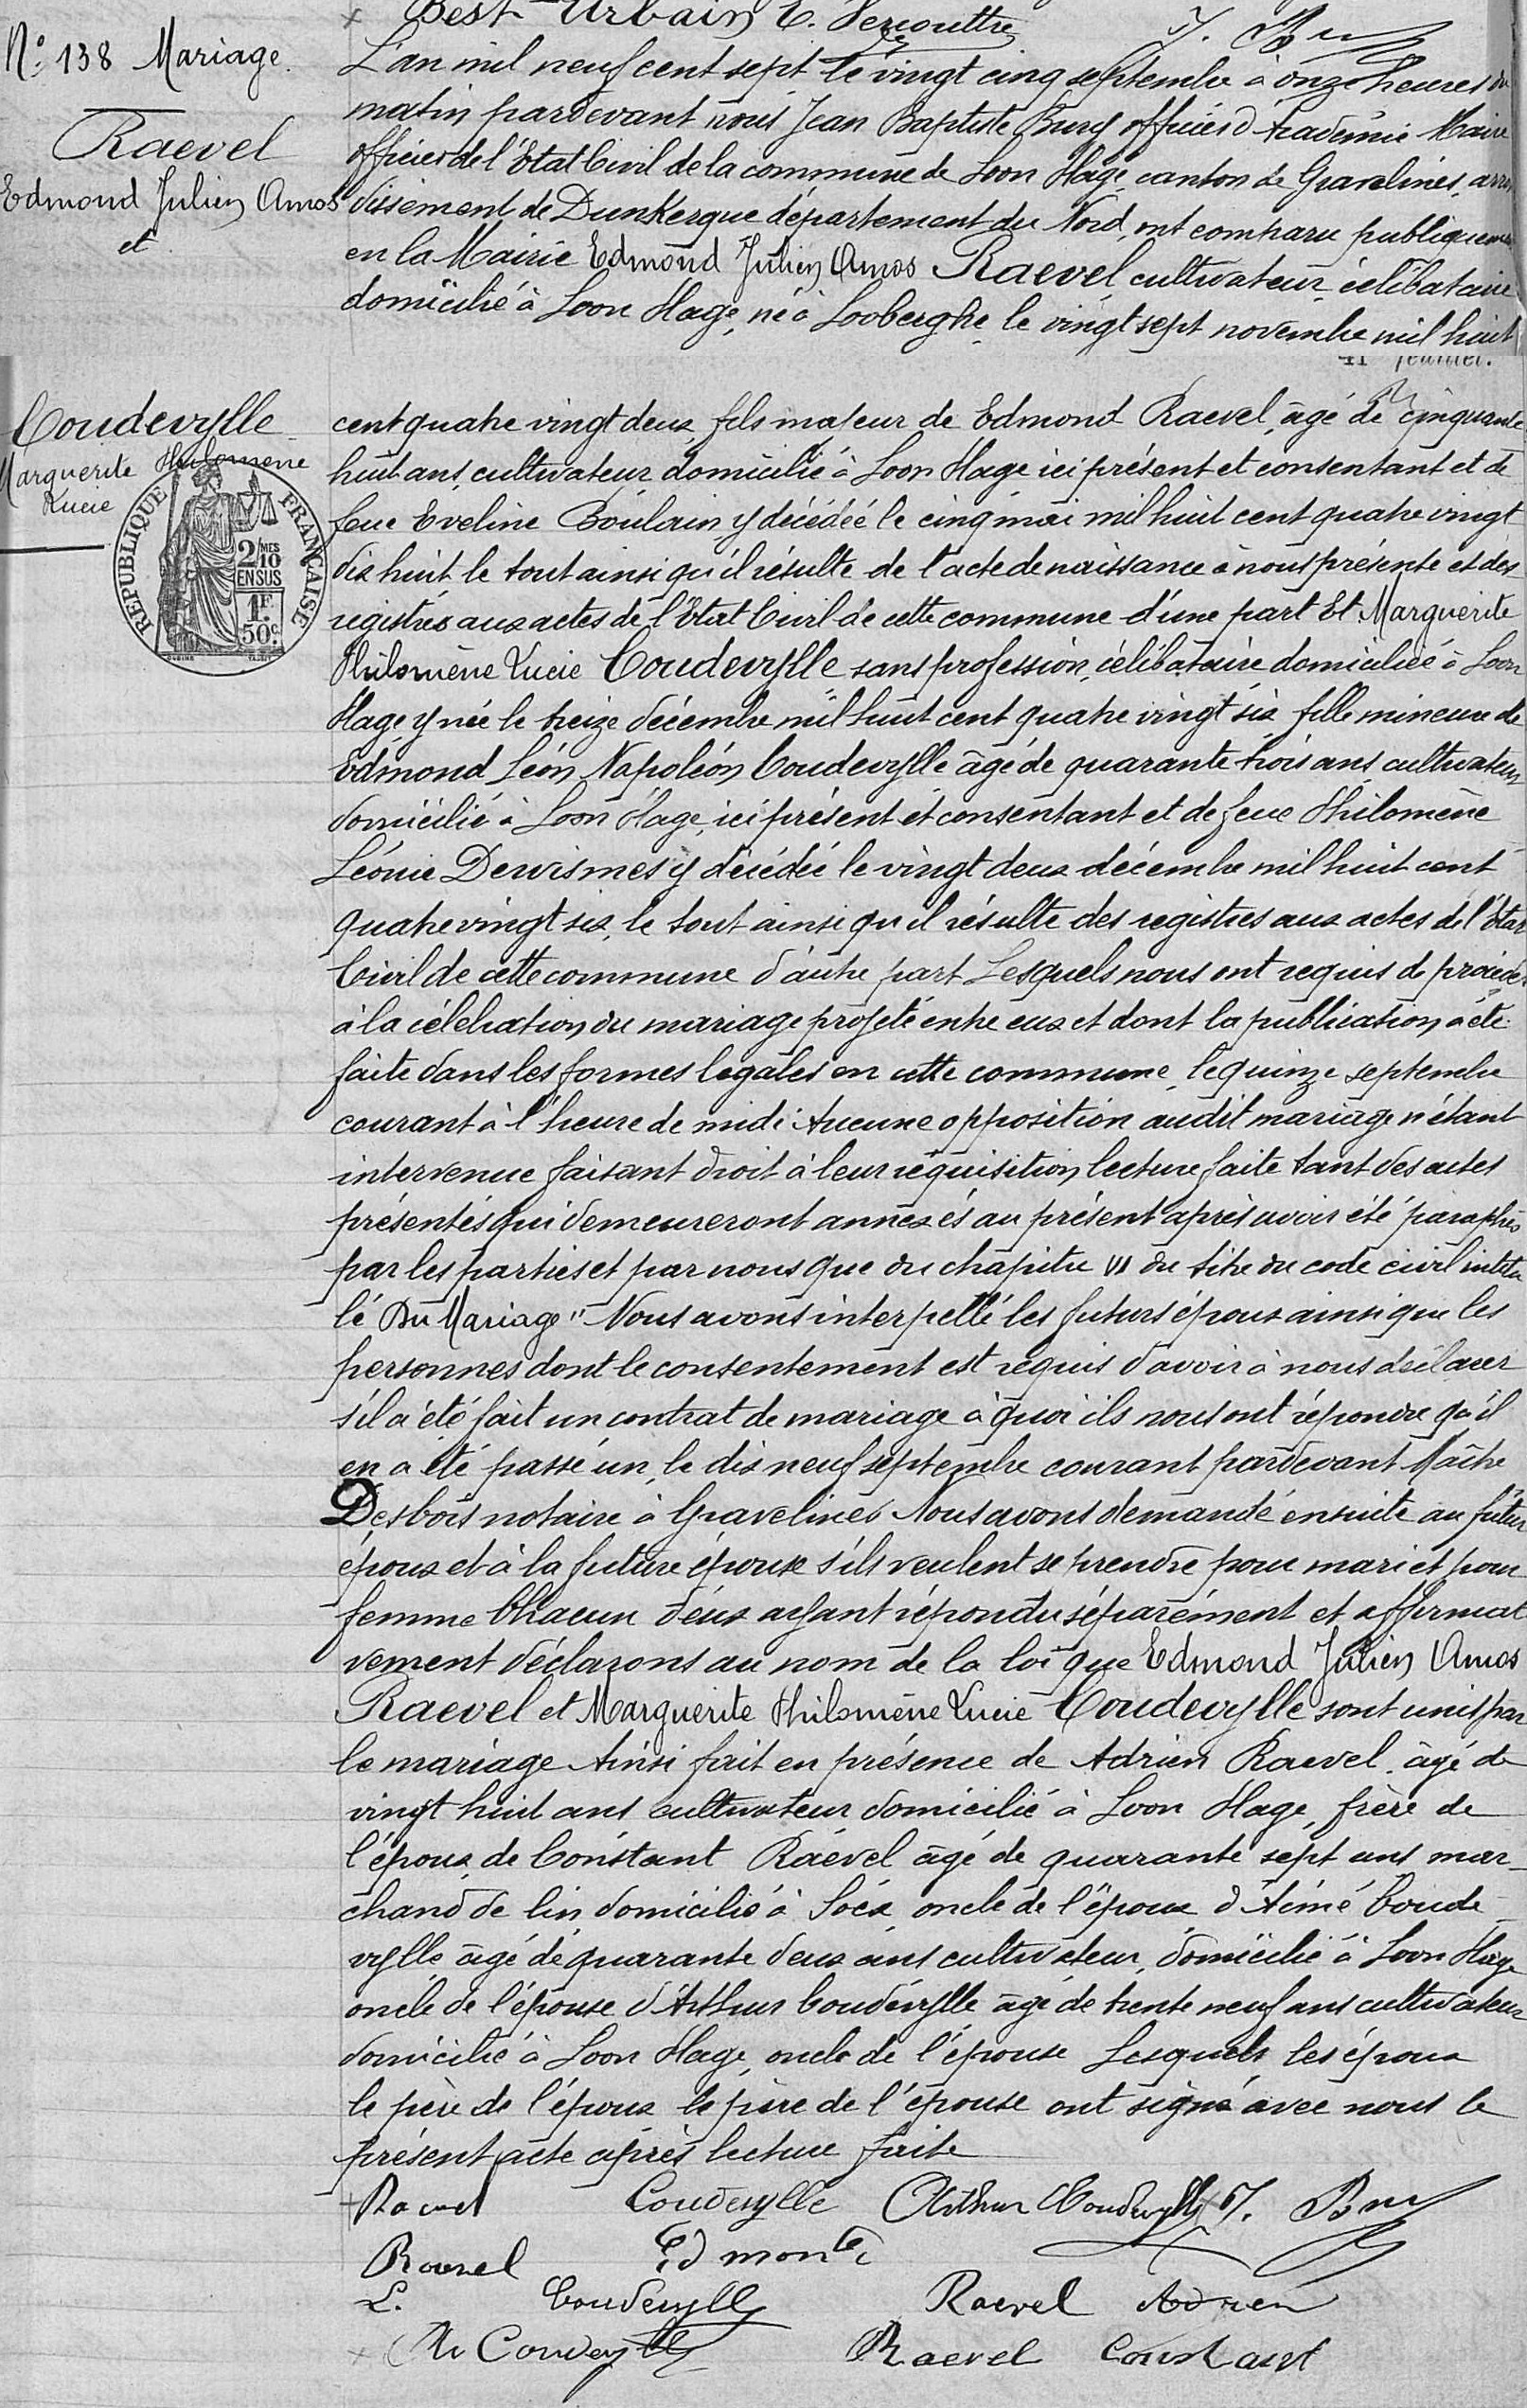 Best Urbain E. Vercouttre J. Bury
N.° 138 Mariage.
Raevel
Edmond Julien Amos
et
L'an mil neuf cent sept le vingt cinq septembre à onze heures du
matin pardevant nous Jean Baptiste Bury officier d'Académie Maire
officier de l'Etat Civil de la commune de Loon Plage, canton de Gravelines, arron
dissement de Dunkerque département du Nord, ont comparu publiquement
en la Mairie Edmond Julien Amos Raevel, cultivateur, célibataire
domicilié à Loon Plage, né à Looberghe le vingt sept novembre mil huit
Coudevylle
Marguerite Philomène
Lucie
REPUBLIQUE FRANÇAISE
2/10MES
EN SUS
1F.
50c.
cent quatre vingt deux, fils majeur de Edmond Raevel, âgé de cinquante
huit ans, cultivateur domicilié à Loon Plage ici présent et consentant et de
feue Eveline Boulain y décédée le cinq mai mil huit cent quatre vingt
dix huit, le tout ainsi qu'il résulte de l'acte de naissance à nous présenté et des
registres aux actes de l'Etat Civil de cette commune d'une part Et Marguerite
Philomène Lucie Coudevylle sans profession, célibataire, domiciliée à Loon
Plage, y née le treize décembre mil huit cent quatre vingt six, fille mineure de
Edmond Léon Napoléon Coudevylle âgé de quarante trois ans, cultivateur
domicilié à Loon Plage, ici présent et consentant et de feue Philomène
Léonie Dewismes y décédée le vingt deux décembre mil huit cent
quatre vingt six, le tout ainsi qu'il résulte des registres aux actes de l'Etat
Civil de cette commune d'autre part Lesquels nous ont requis de procéder
à la célébration du mariage projeté entre eux et dont la publication a été
faite dans les formes légales en cette commune, le quinze septembre
courant à l'heure de midi. Aucune opposition audit mariage n'étant
intervenue faisant droit à leur réquisition, lecture faite tant des actes
présentés qui demeureront annexés au présent après avoir été paraphés
par les parties et par nous que du chapitre VI du titre du code civil intitu
lé Du Mariage" Nous avons interpellé les futurs époux ainsi que les
personnes dont le consentement est requis d'avoir à nous déclarer
s'il a été fait un contrat de mariage à quoi ils nous ont répondre qu'il
en a été passé un, le dix neuf septembre courant pardevant Maître
Desbois notaire à Gravelines Nous avons demandé ensuite au futur
époux et à la future épouse s'ils veulent se prendre pour mari et pour
femme Chacun d'eux ayant répondu séparément et affirmati
vement déclarons au nom de la loi que Edmond Julien Amos
Raevel et Marguerite Philomène Lucie Coudevylle sont unis par
le mariage Ainsi fait en présence de Adrien Raevel, âgé de
vingt huit ans cultivateur domicilié à Loon Plage, frère de
l'époux, de Constant Raevel âgé de quarante sept ans mar-
chand de lin domicilié à Socx oncle de l'époux, d'Aimé Coude-
vylle âgé de quarante deux ans cultivateur, domicilié à Loon Plage
oncle de l'épouse, d'Arthur Coudevylle âgé de trente neuf ans cultivateur
domicilié à Loon Plage, oncle de l'épouse Lesquels les époux
le père de l'époux le père de l'épouse ont signé avec nous le
présent acte après lecture faite
Raevel Coudevylle Arthur Coudevylle J. Bury
Raevel Edmond
L. Coudevylle Raevel Adrien
Coudevylle Raevel Constant